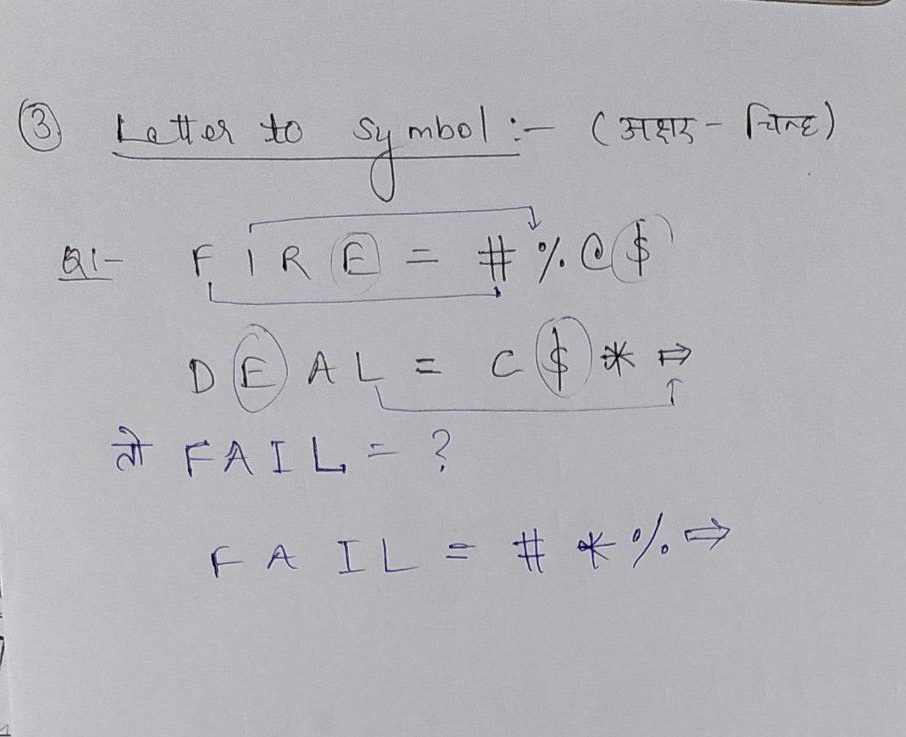 ③ Letter to symbol :- (अक्षर - चिन्ह)
Q1- F I R E = # % @ $
D E A L = C $ * ⇒
तो F A I L = ?
F A I L = # * % ⇒